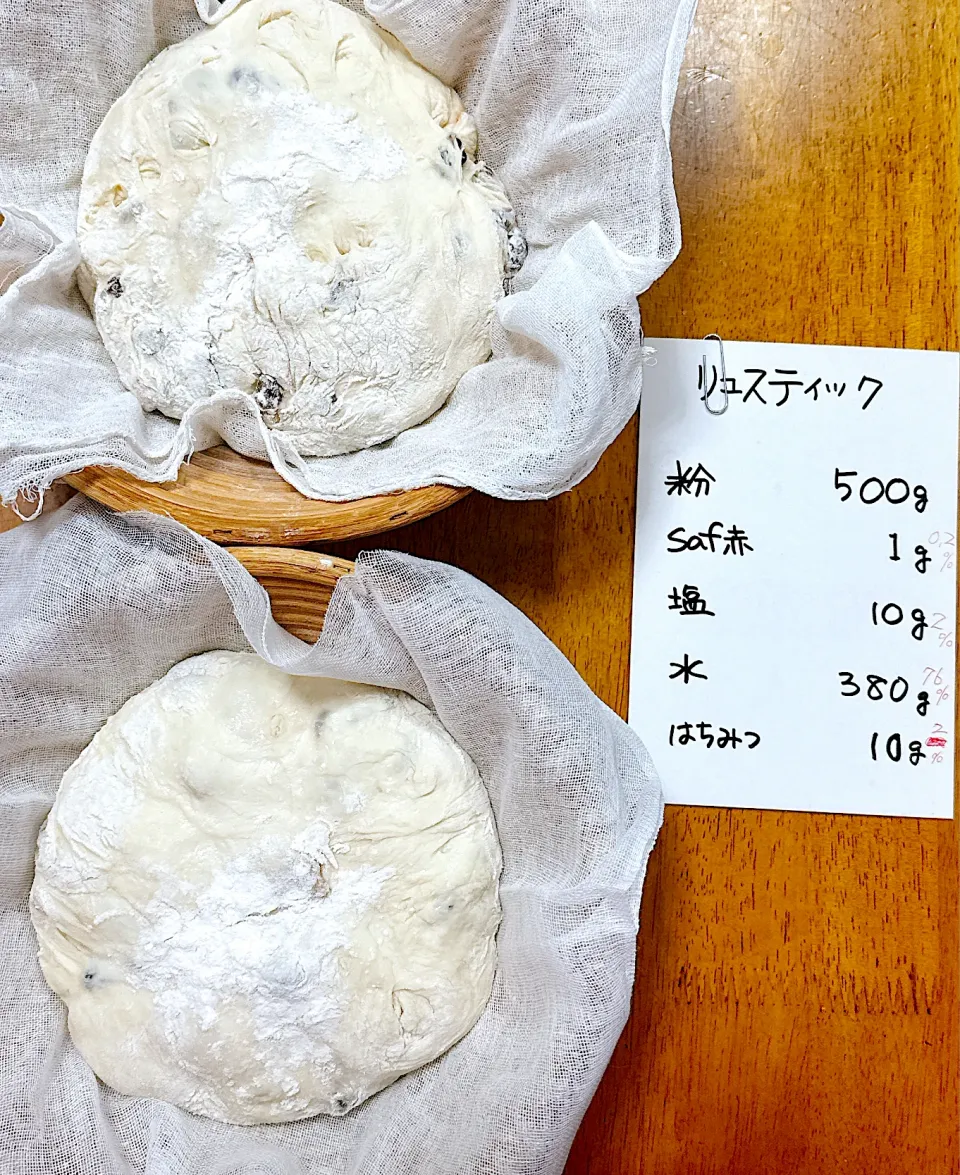 リュスティック
粉 500g
saf赤 1g 0.2%
塩 10g 2%
水 380g 76%
はちみつ 10g 2%